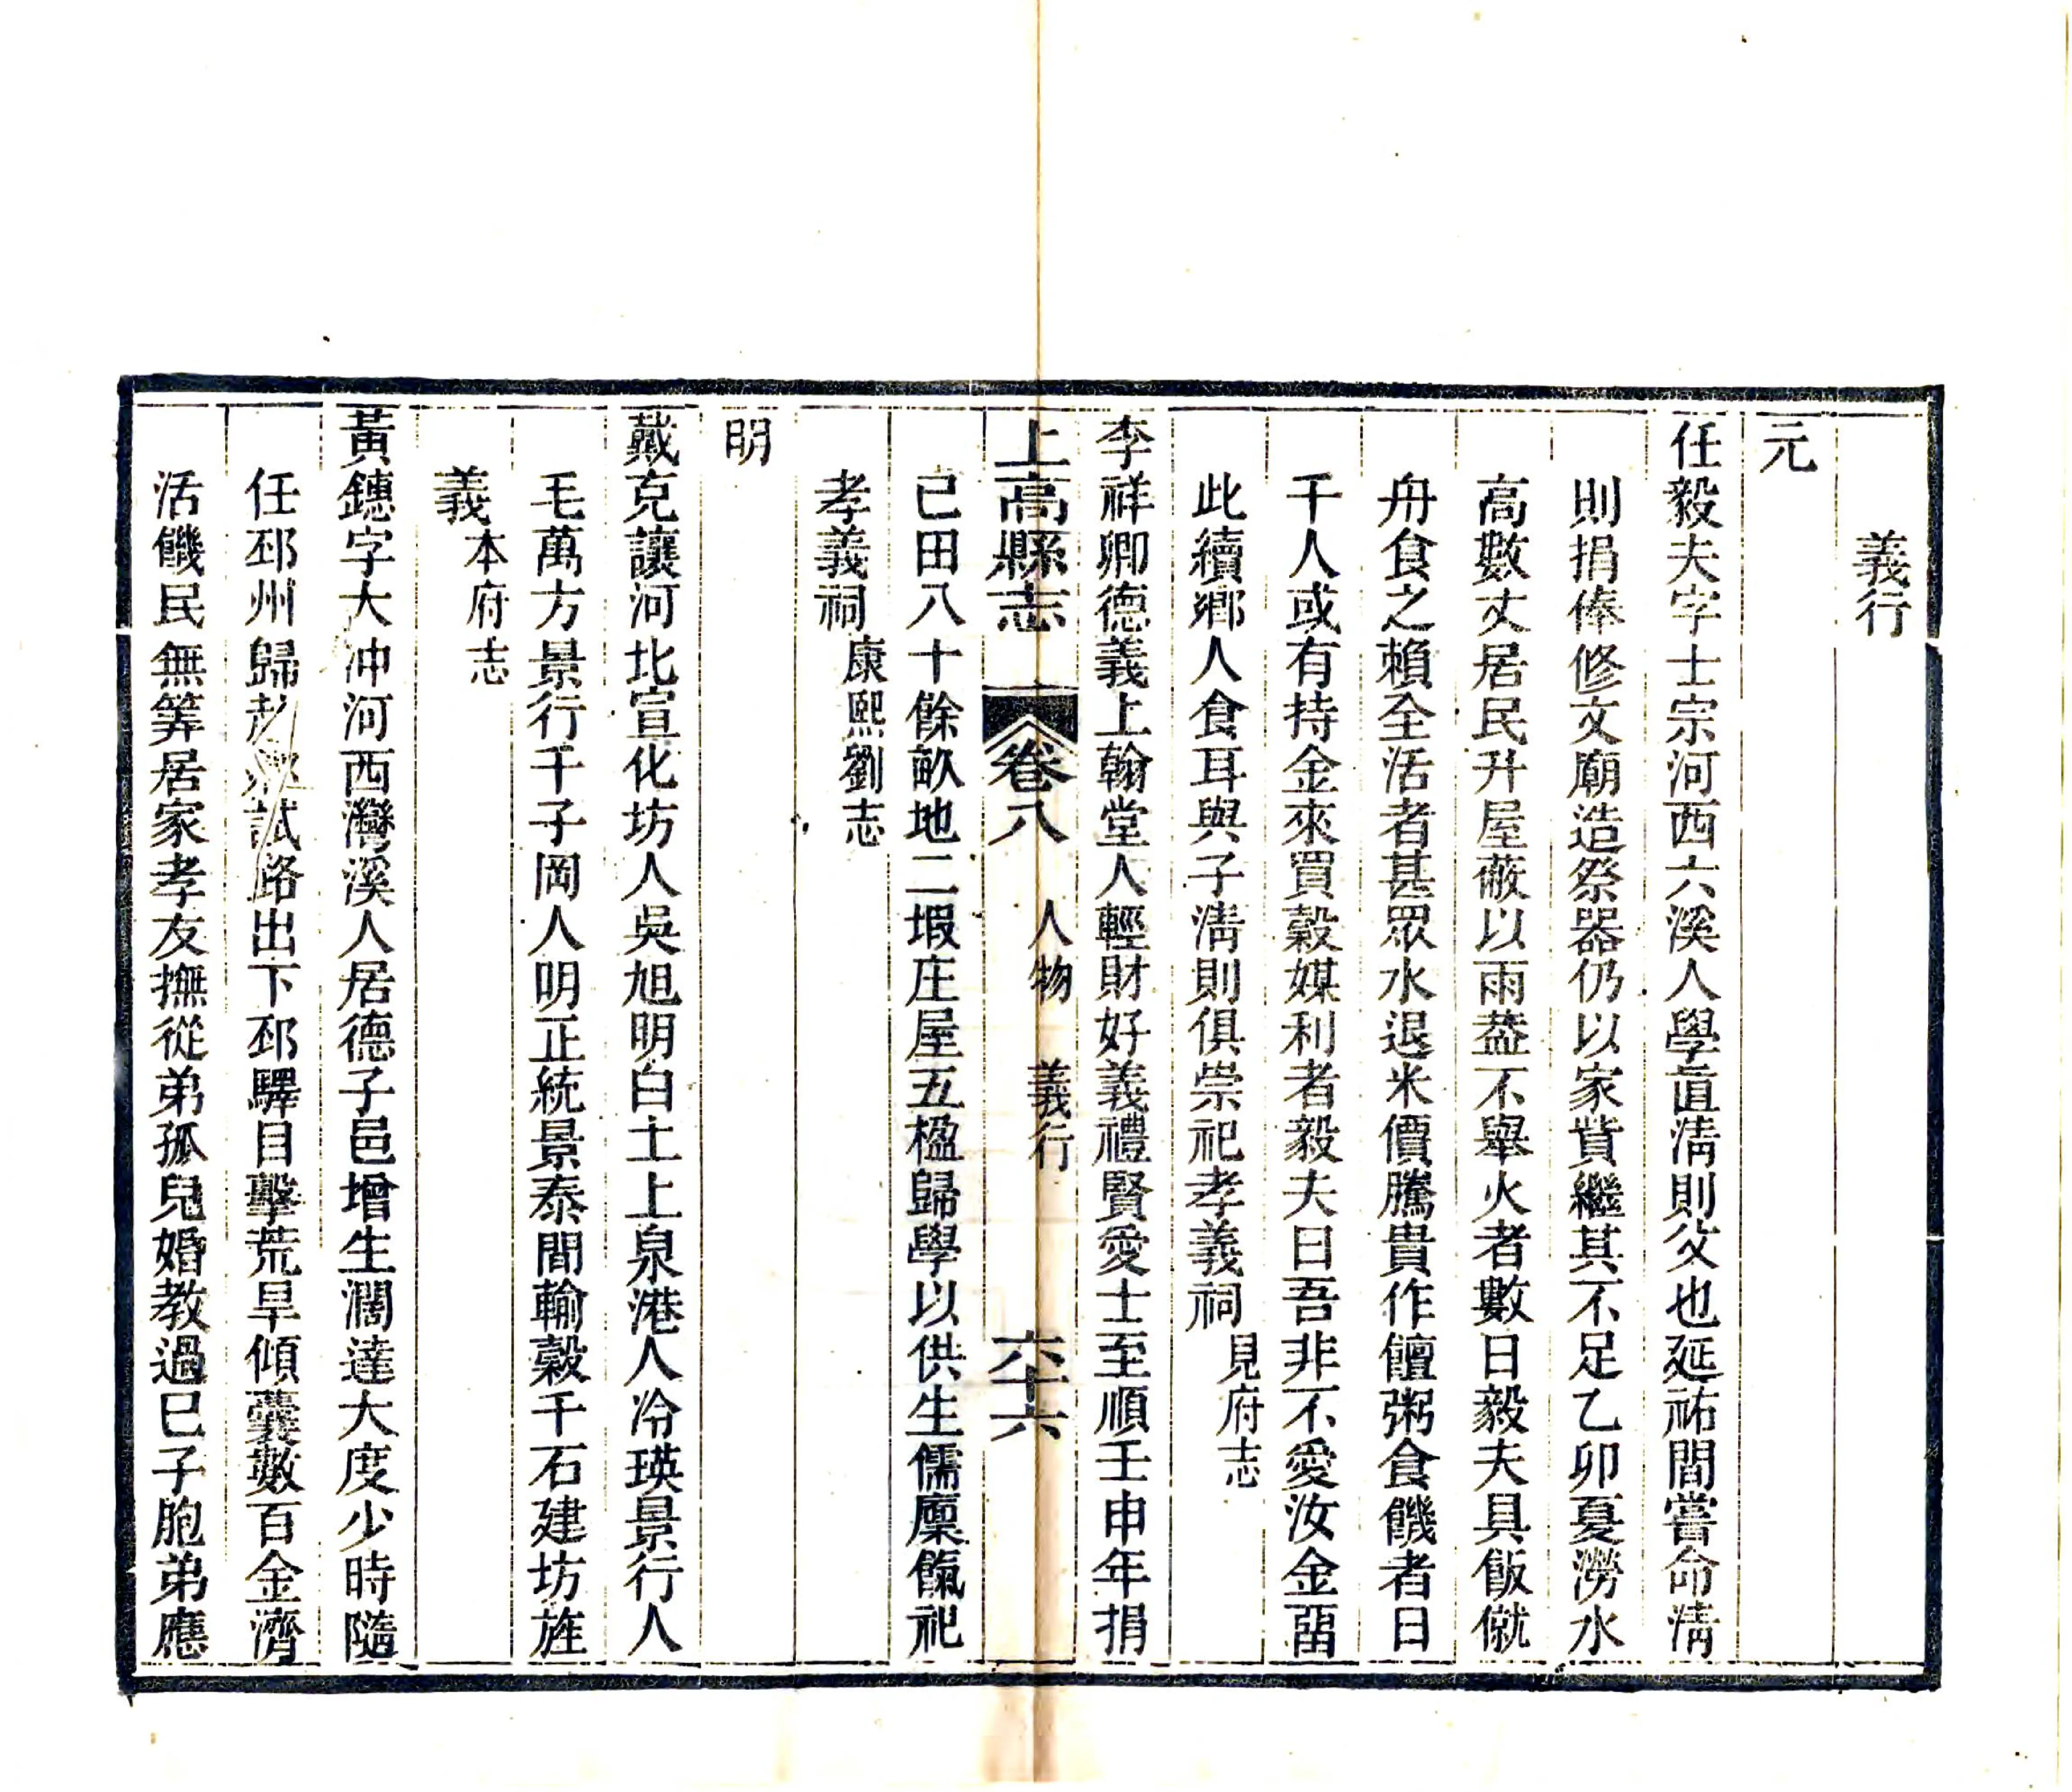 義行
元
任毅夫字士宗河西六溪人學直淸則父也延祐間嘗命淸
則捐俸修文廟造祭器仍以家貲繼其不足乙卯夏澇水
高數丈居民升屋蔽以雨葢不舉火者數日毅夫具飯僦
舟食之賴全活者甚眾水退米價騰貴作饘粥食饑者日
千人或有持金來買穀媒利者毅夫曰吾非不愛汝金留
此續鄉人食耳與子淸則俱崇祀孝義祠見府志
李祥卿德義上翰堂人輕財好義禮賢愛士至順壬申年捐
上高縣志 卷八 人物 義行 六十六
已田八十餘畝地二塅庄屋五楹歸學以供生儒廩餼祀
孝義祠康熙劉志
明
戴克讓河北宣化坊人吳旭明白土上泉港人冷瑛景行人
毛萬方景行千子岡人明正統景泰間輸穀千石建坊旌
義本府志
黃鏸字大冲河西灣溪人居德子邑增生濶達大度少時隨
任邳州歸赴試路出下邳驛目擊荒旱傾囊數百金濟
活饑民無筭居家孝友撫從弟孤兒婚教過已子胞弟應